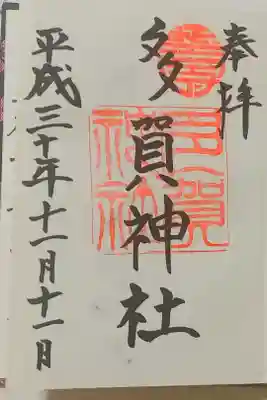 奉拝
多賀神社
平成三十年十一月十一日